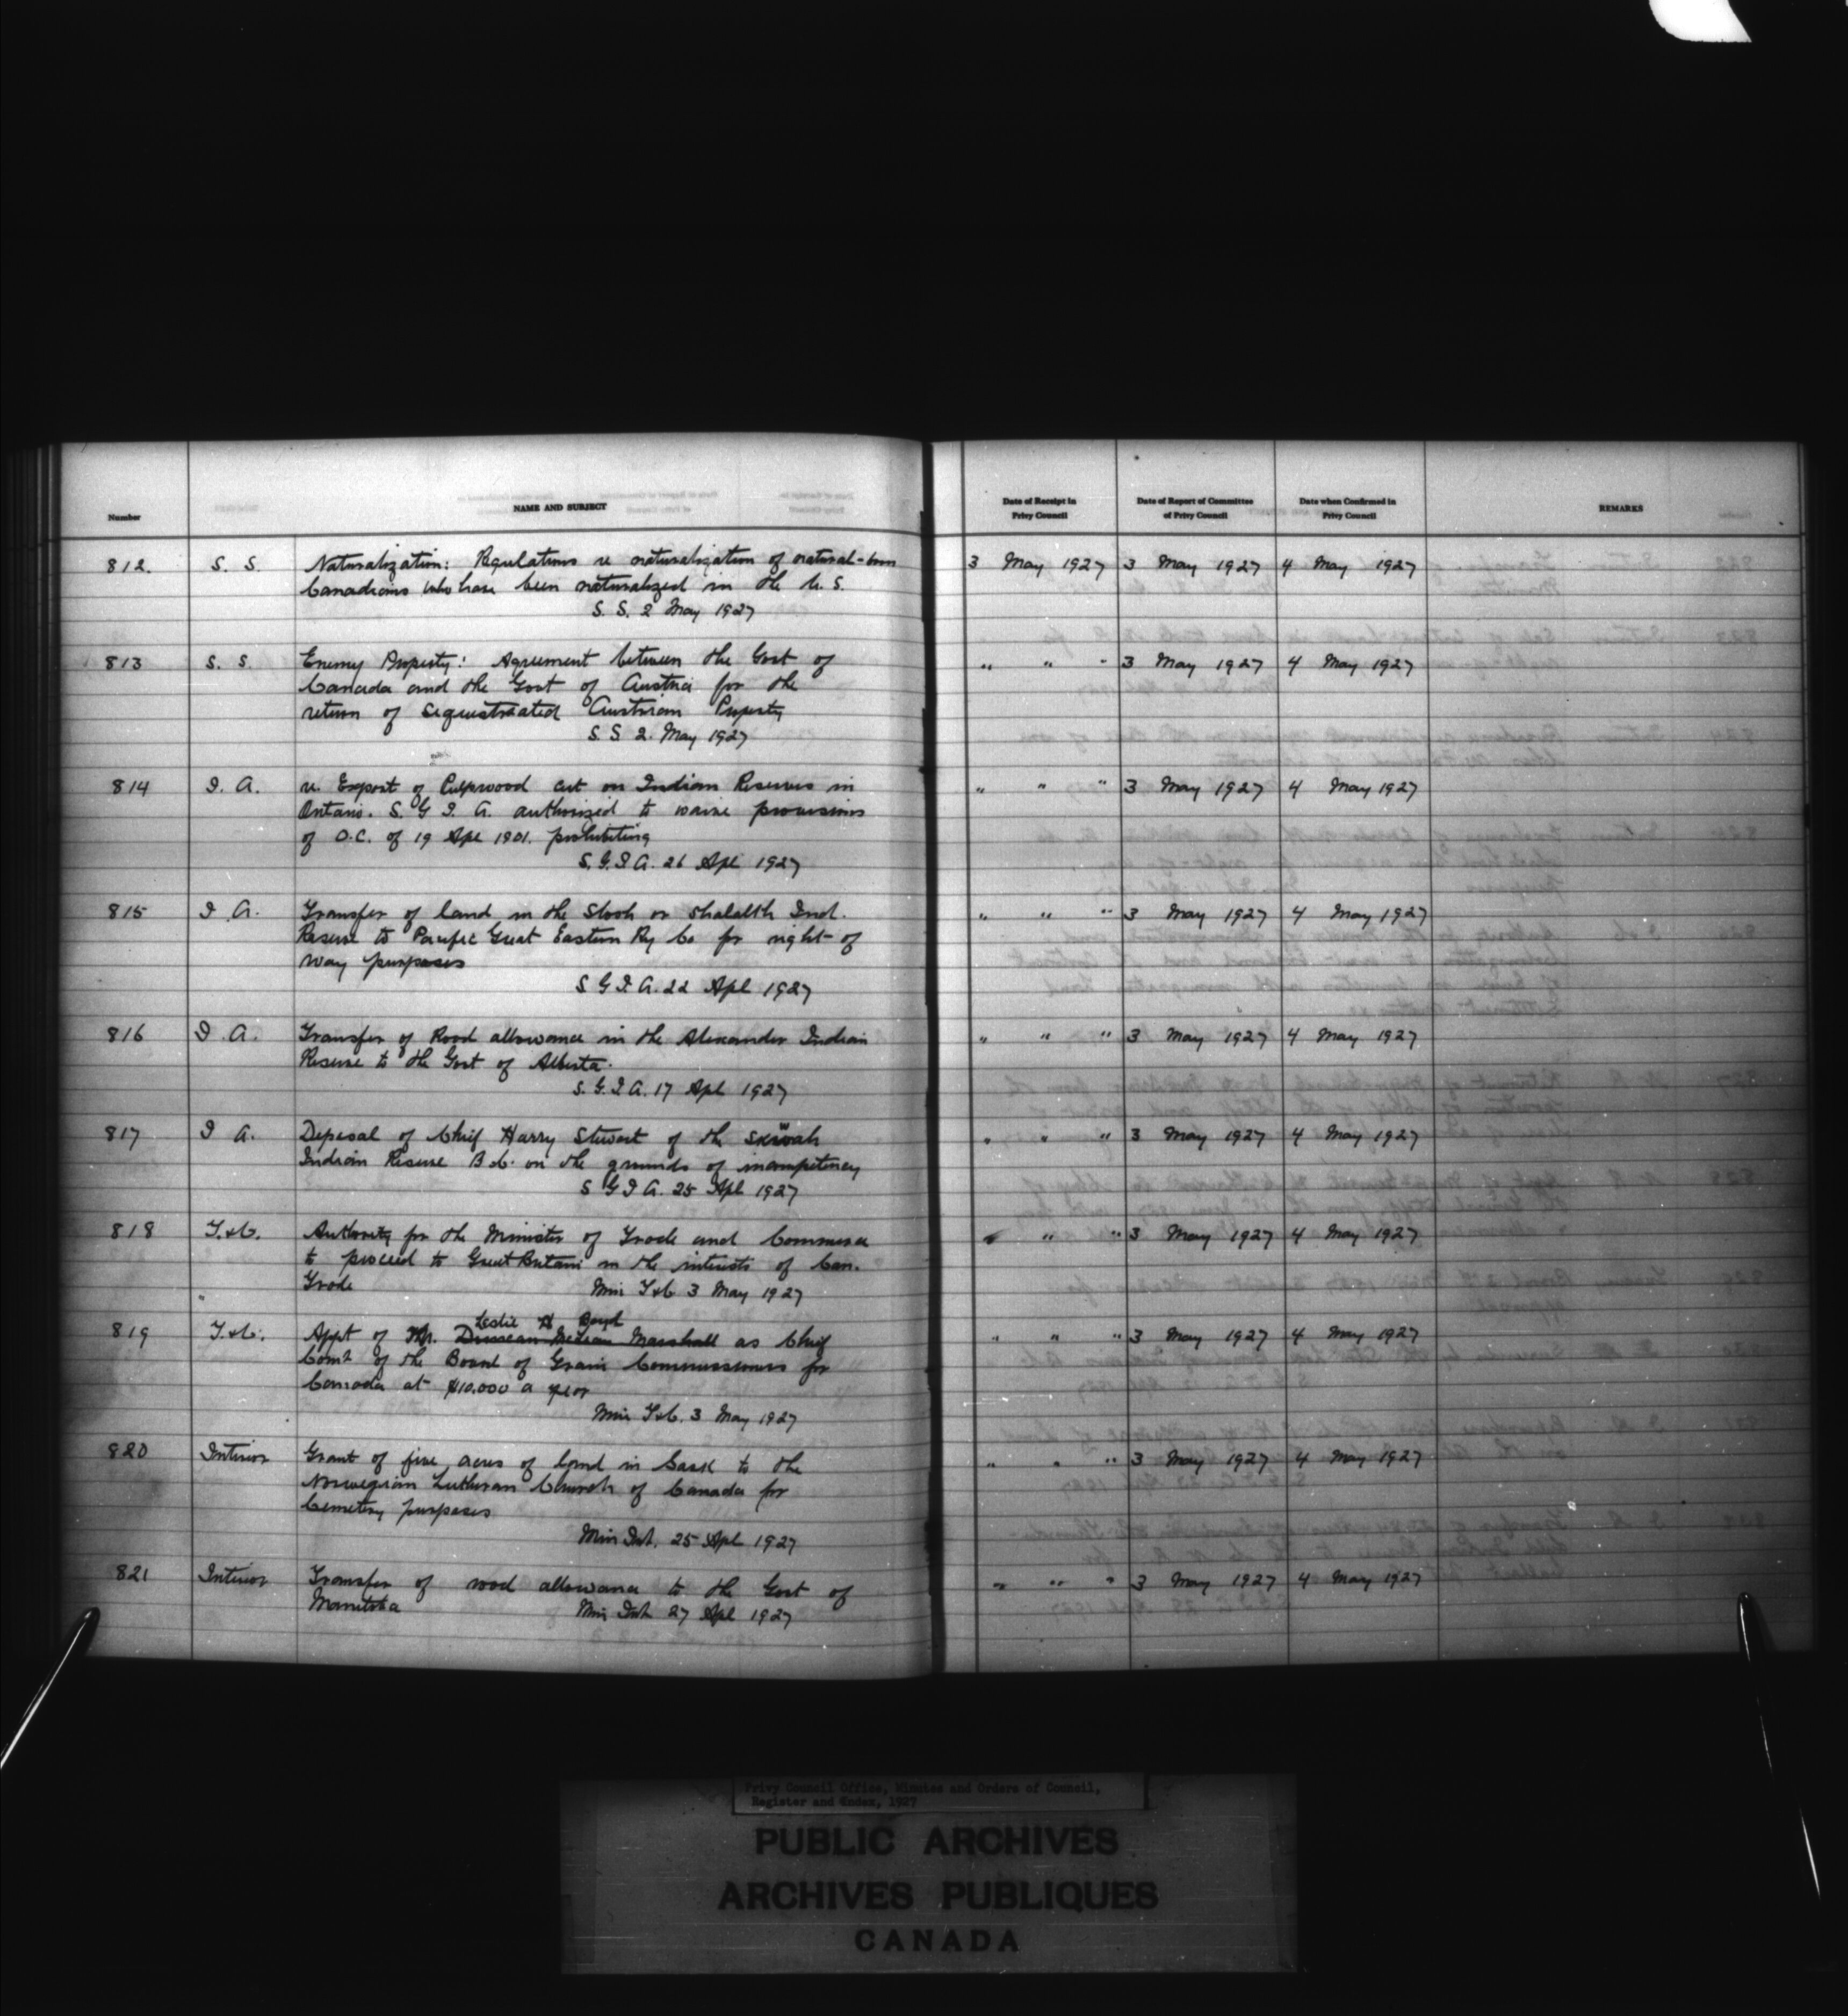 Number
NAME AND SUBJECT
Date of Receipt in
Privy Council
Date of Report of Committee
of Privy Council
Date when Confirmed in
Privy Council
REMARKS
812. S. S. Naturalization: Regulations re naturalization of natural-born 3 May 1927 3 May 1927 4 May 1927
Canadians who have been naturalized in the U. S.
S. S. 2 May 1927
813 S. S. Enemy Property: Agreement between the Govt of " " " 3 May 1927 4 May 1927
Canada and the Govt of Austria for the
return of sequestrated Austrian Property
S. S 2. May 1927
814 I. A. re. Export of Pulpwood cut on Indian Reserves in " " " 3 May 1927 4 May 1927
Ontario. S. G I. A. authorized to waive provisions
of O.C. of 19 Apl 1901. prohibiting
S. G. I A. 26 Apl 1927
815 I A. Transfer of land in the Slosh or Shalalth Ind. " " " 3 May 1927 4 May 1927
Reserve to Pacific Great Eastern Ry Co for right-of
way purposes
S G I A. 22 Apl 1927
816 I A. Transfer of Road allowance in the Alexander Indian " " " 3 May 1927 4 May 1927
Reserve to the Govt of Alberta.
S. G. I A. 17 Apl 1927
817 I A. Deposal of Chief Harry Stewart of the " " " 3 May 1927 4 May 1927
Indian Reserve B.C. on the grounds of incompetency
S G I A. 25 Apl 1927
818 T.&C. Authority for the Minister of Trade and Commerce " " " 3 May 1927 4 May 1927
to proceed to Great Britain in the interests of Can.
Trade Min T&C 3 May 1927
Leslie H Boyd
819 T.&C. Appt of Mr. Duncan McLean Marshall as Chief " " " 3 May 1927 4 May 1927
Comr of the Board of Grain Commissioners for
Canada at $10.000 a year
Min T&C. 3 May 1927
820 Interior Grant of five acres of land in Sask to the " " " 3 May 1927 4 May 1927
Norwegian Lutheran Church of Canada for
Cemetery purposes
Min Int. 25 Apl 1927
821 Interior Transfer of road allowance to the Govt of " " " 3 May 1927 4 May 1927
Manitoba Min Int 27 Apl 1927
Privy Council Office, Minutes and Orders of Council,
Register and Index, 1927
PUBLIC ARCHIVES
ARCHIVES PUBLIQUES
CANADA